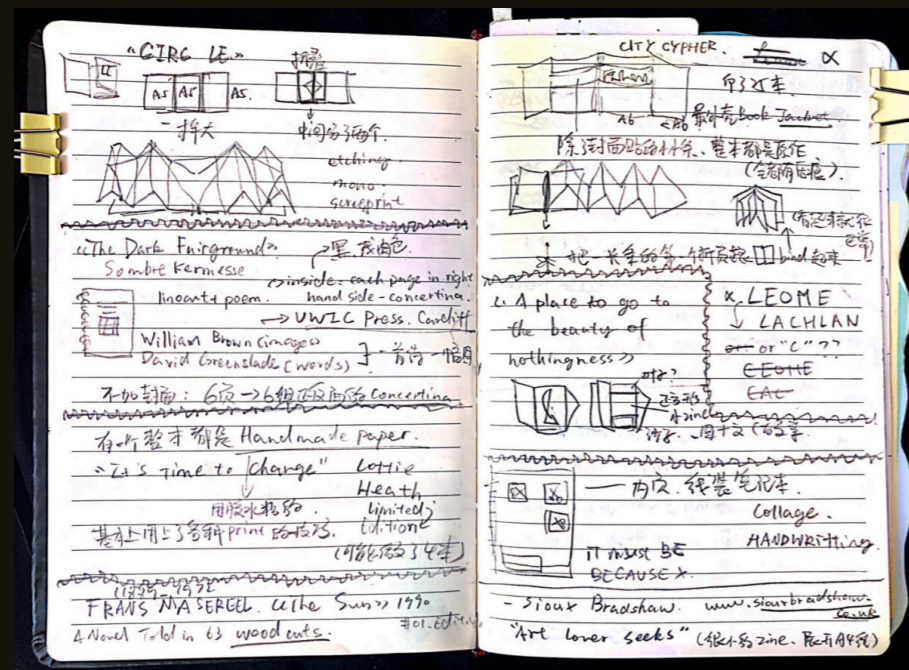 "CIRCLE"
折叠
A5 A5 A5
一拆大
中间分了两个.
etching.
mono
screeprint
《The Dark Fairground》
Sombre Kermesse
→黑,灰白色
→inside. each page in right
linoart + poem. hand side-concertina.
→ UWIC Press. Cardiff
William Brown (images)
David Greenslade (words)
一首诗 一幅图
不加封面: 6页→6组正反面的 concertina.
有一个整本都是 Handmade paper.
"It's Time to Change" Lottie
Heath
用胶水粘的. limited
edition
基本上用上了各种print的技巧.
(可能做了4本)
FRANS MASEREEL. 《The Sun》 1990
A Novel Told in 63 woodcuts.
CITY CYPHER.
α
印了25本
A6
最外壳 Book Jacket
除了封面贴的, 整本都是原作
(全都有压痕).
把一长条的
bind 起来
《A place to go to
the beauty of
nothingness》
α. LEOME
↓ LACHLAN
or "C" ??
LEOME
LAC
对折?
正方形
小zine
内页. 线装笔记本.
Collage.
HANDWRITTING.
IT MUST BE
BECAUSE X.
- Sioux Bradshaw. www.siouxbradshaw.
co.uk
"Art Lover Seeks" (很小的 zine.